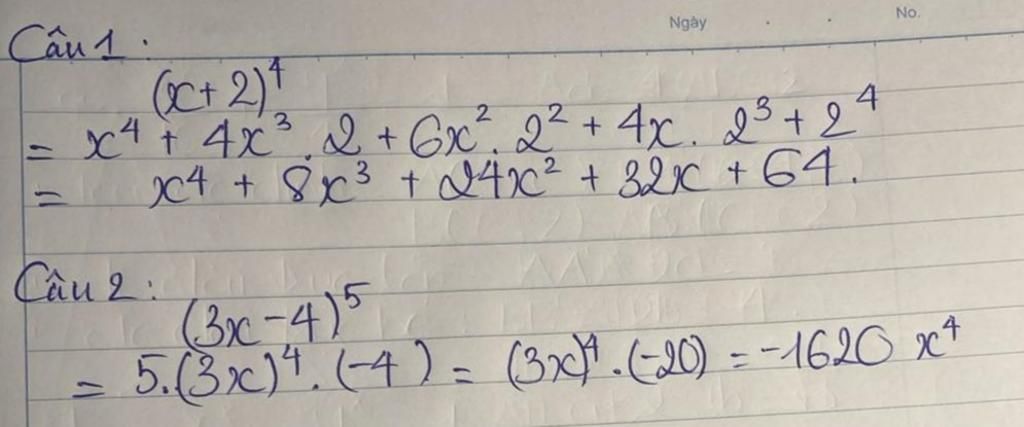 Ngày . . No.
Câu 1 :
(x + 2)⁴
= x⁴ + 4x³ . 2 + 6x² . 2² + 4x . 2³ + 2⁴
= x⁴ + 8x³ + 24x² + 32x + 64 .
Câu 2 :
(3x - 4)⁵
= 5.(3x)⁴ . (-4) = (3x)⁴ . (-20) = -1620 x⁴